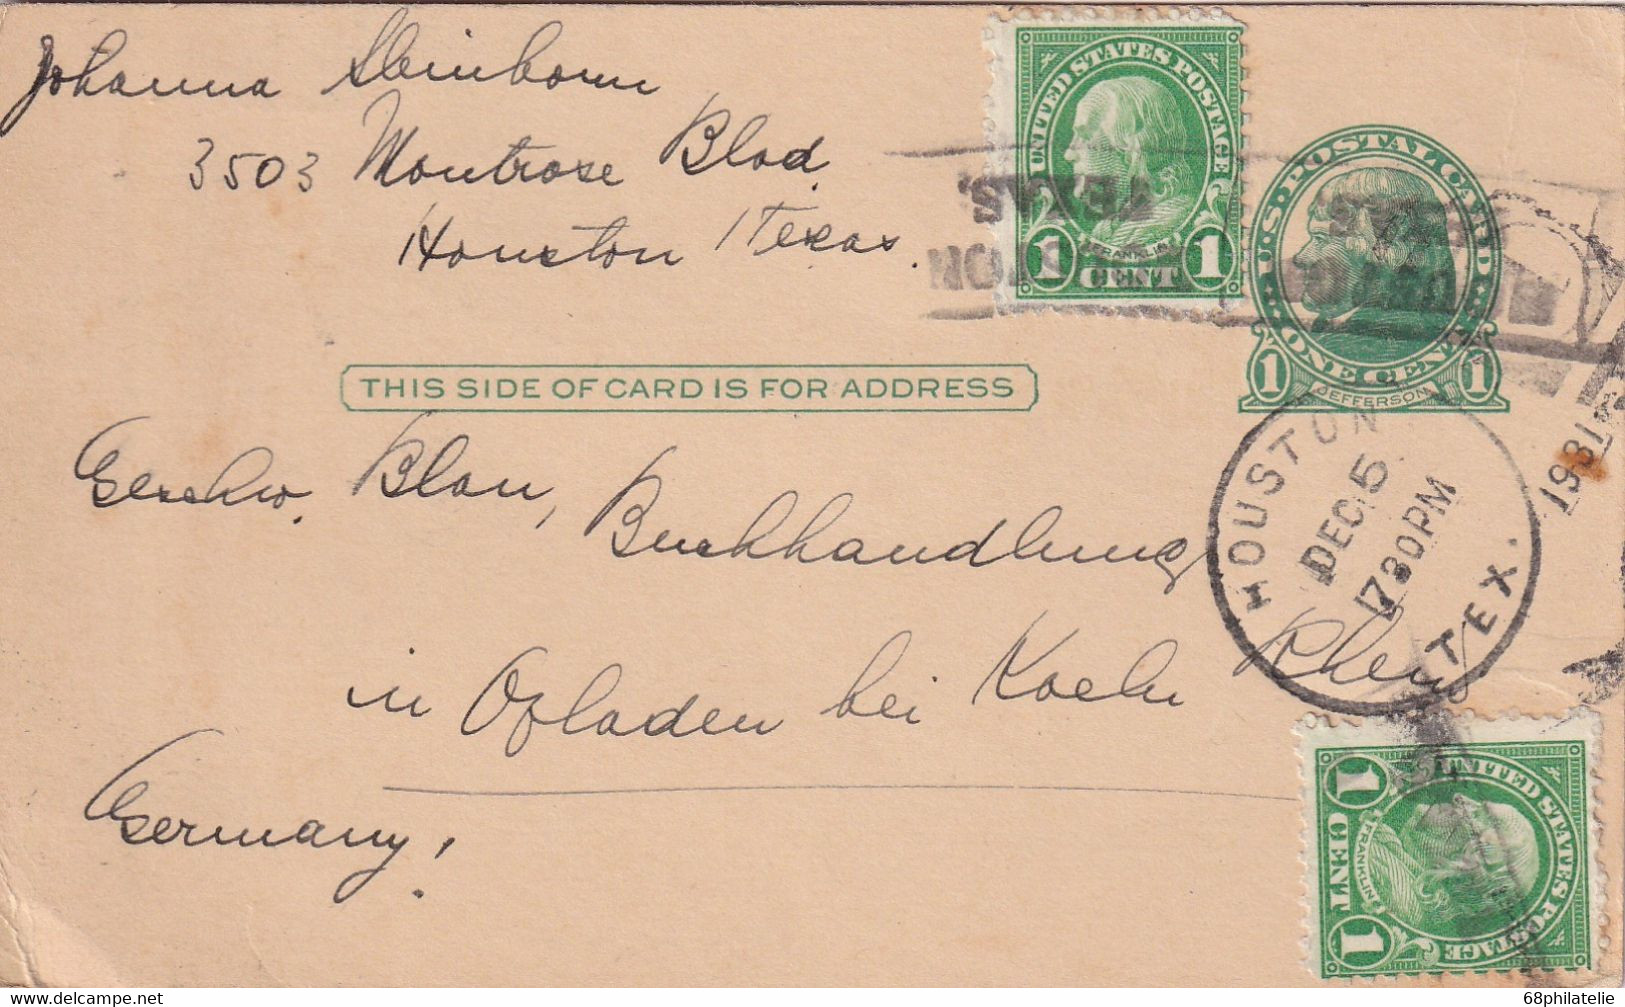 Johanna Steinborn
3503 Montrose Blvd.
Houston Texas.
UNITED STATES POSTAGE
FRANKLIN
1 CENT 1
TEXAS.
HOUSTON
U.S. POSTAL CARD
1 ONE CENT 1
JEFFERSON
THIS SIDE OF CARD IS FOR ADDRESS
HOUSTON
DEC 5
730 PM
1931
TEX.
Geschw. Blau, Buchhandlung
in Opladen bei Koeln Rhein
Germany!
UNITED STATES POSTAGE
FRANKLIN
1 CENT 1
68philatelie
delcampe.net